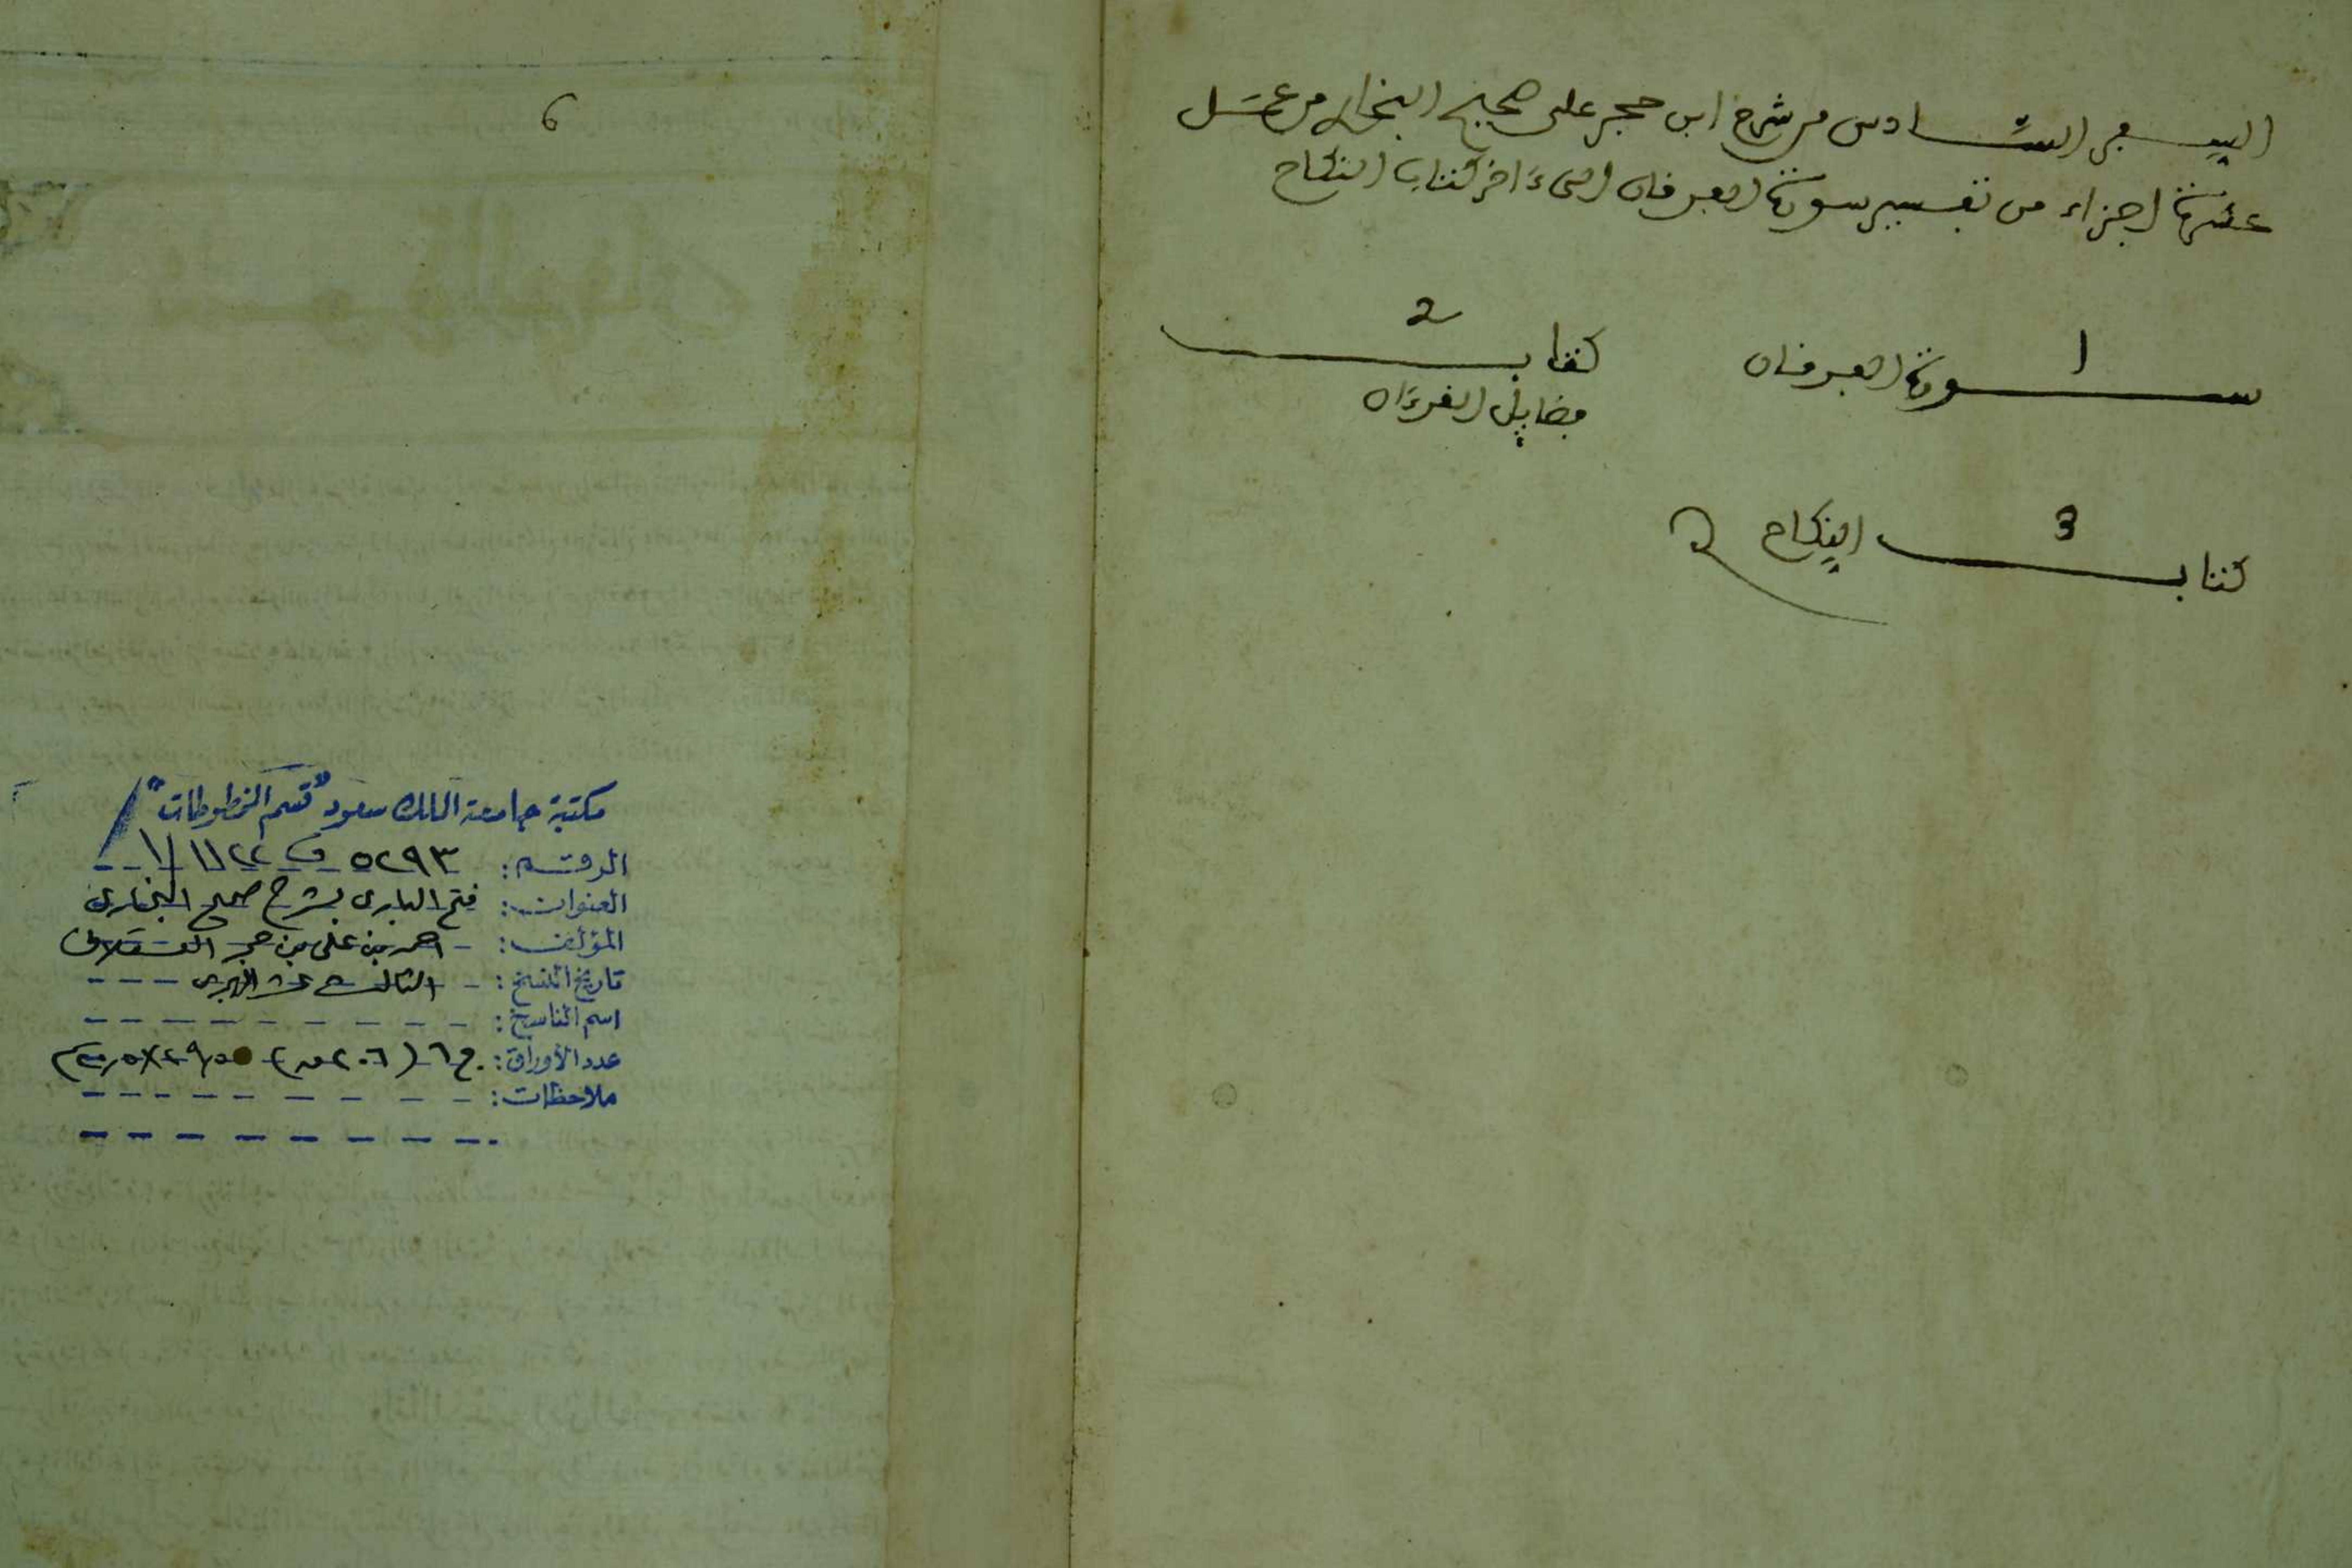 السفر السادس من شرح ابن حجر على صحيح البخاري من عمل
عشرة اجزاء من تفسير سورة الفرقان الى ءاخر كتاب النكاح
1
سورة الفرقان
2
كتاب
فضايل القرءان
3
كتاب النكاح
6
مكتبة جامعة الملك سعود "قسم المخطوطات"
الرقم: ٥٢٩٣ ف ١١٢٢ / ١
العنوان: فتح الباري بشرح صحيح البخاري
المؤلف: احمد بن علي بن حجر العسقلاني
تاريخ النسخ: الثالث عشر الهجري
اسم الناسخ:
عدد الأوراق: ج٦ (٢٠٦ ق)
ملاحظات: